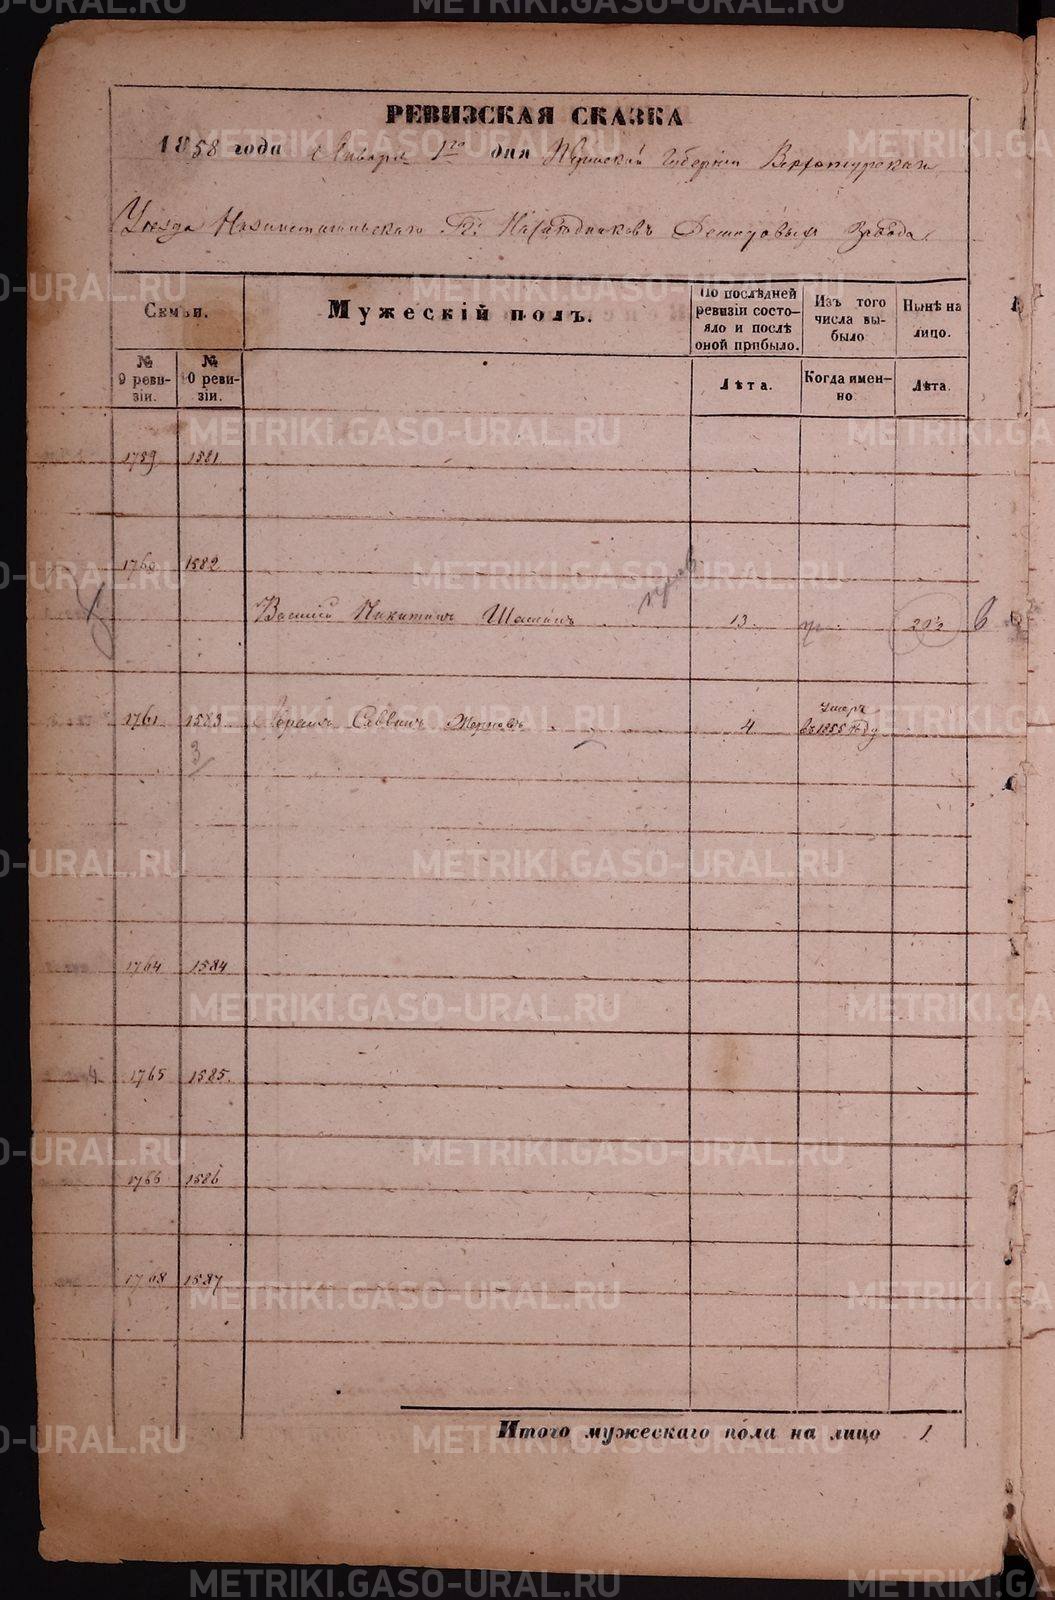 РЕВИЗСКАЯ СКАЗКА
1858 года Января 1го дня Пермской Губернии Верхотурскаго
Уезда Г: Наследниковъ Демидовыхъ Завода
Семьи.
Мужескій полъ.
По послѣдней ревизіи состояло и послѣ оной прибыло.
Изъ того числа выбыло
Нынѣ на лицо.
№ 9 ревизіи.
№ 10 ревизіи.
Лѣта.
Когда именно
Лѣта.
1759 1581
1760 1582
Василій Никитинъ 13
1761 1583 Саввинъ 4 умеръ въ 1855 году
3
1764 1584
4 1765 1585.
1766 1586
1768 1587
Итого мужескаго пола на лицо 1
METRIKI.GASO-URAL.RU